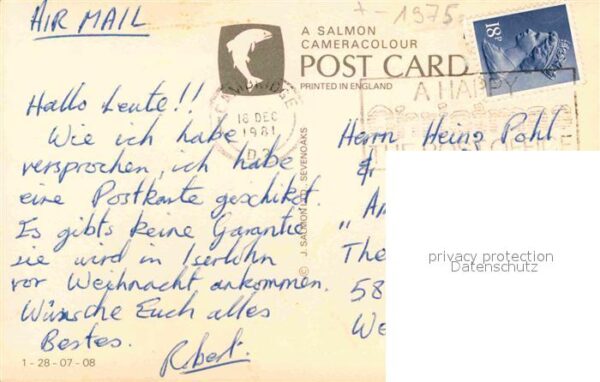 AIR MAIL
+ - 1975
A SALMON
CAMERACOLOUR
POST CARD
PRINTED IN ENGLAND
18P
CAMBRIDGE
18 DEC
1981
A HAPPY
THE POST OFFICE
Hallo Leute!!
Wie ich habe
versprochen, ich habe
eine Postkarte geschikt.
Es gibts keine Garantie
sie wird in Iserlohn
vor Weihnacht ankommen.
Wünsche Euch alles
Bestes.
Robert.
1 - 28 - 07 - 08
© J. SALMON LTD. SEVENOAKS
Herrn Heinz Pohl
"Am
The
58
We
privacy protection
Datenschutz